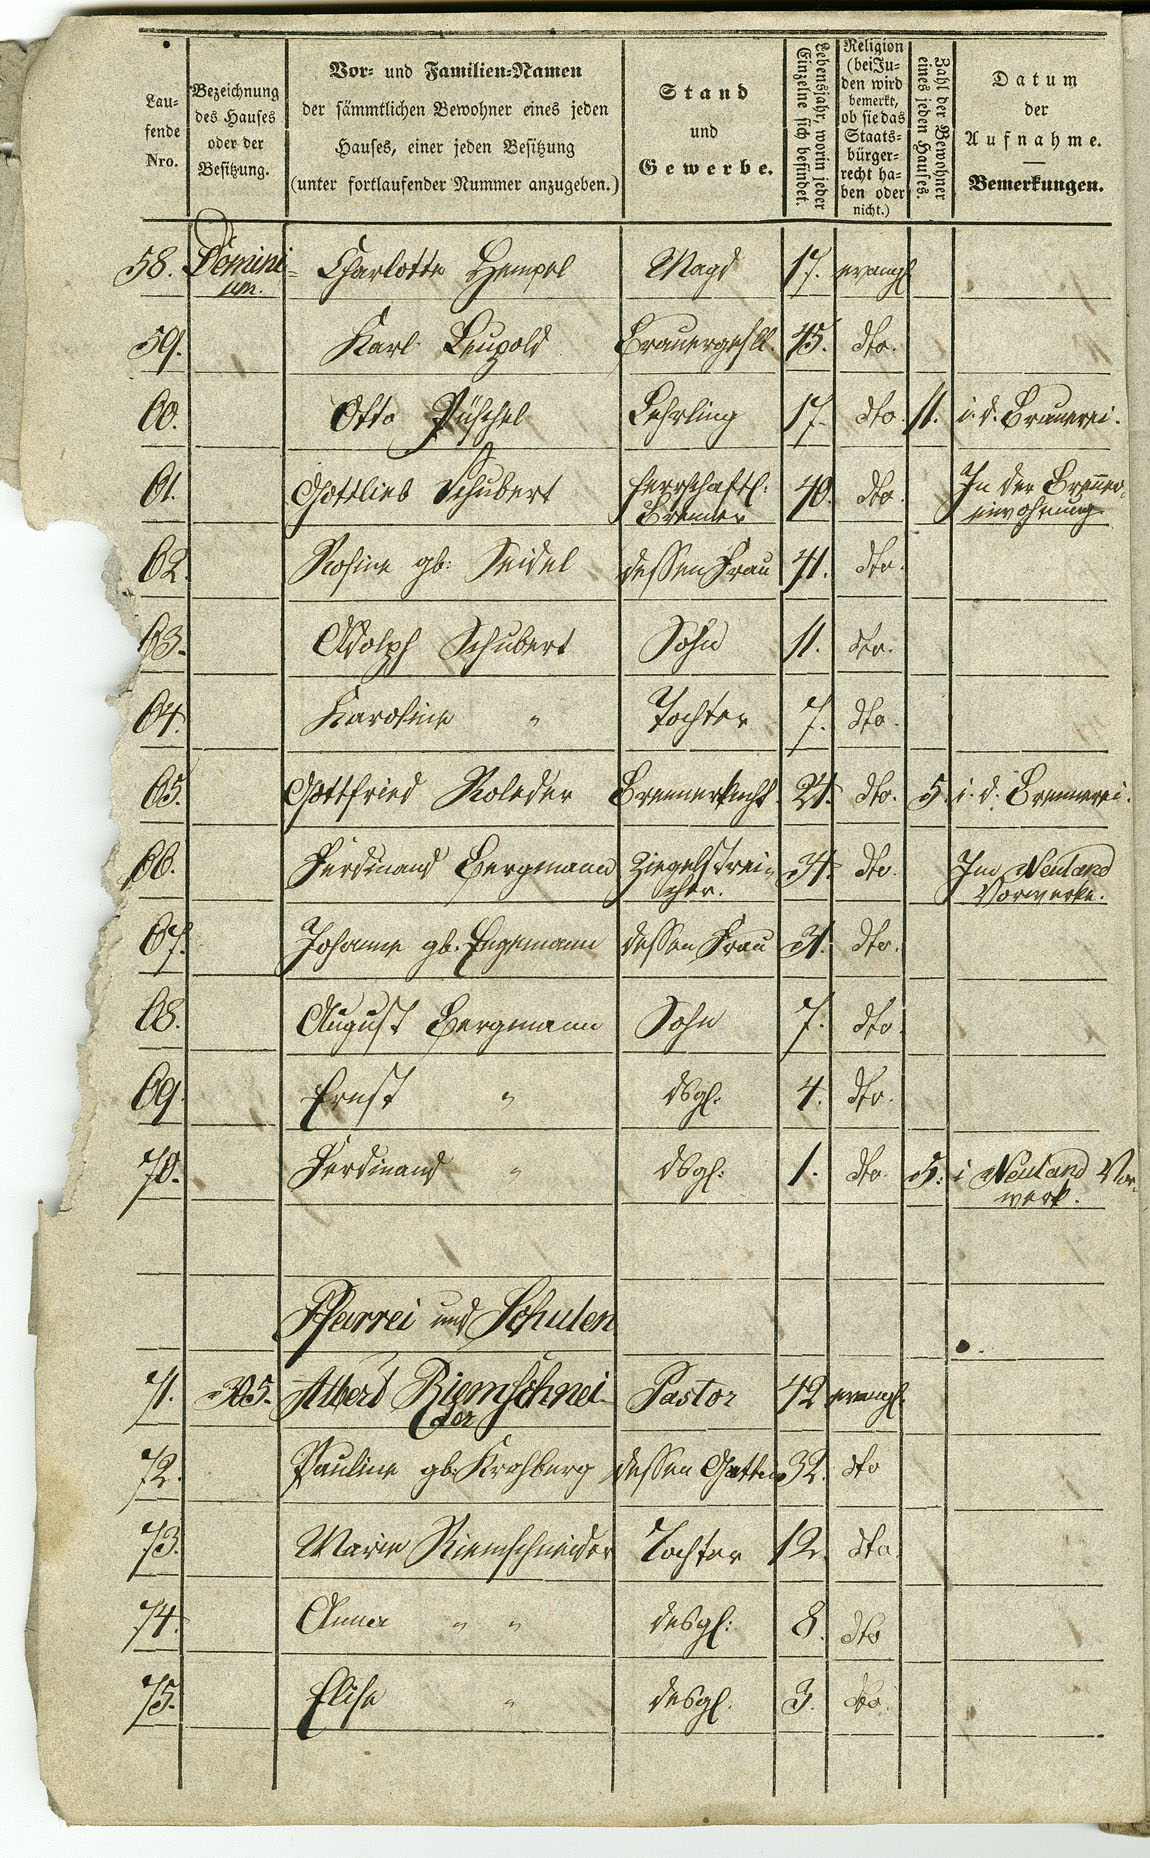 Lau-
fende
Nro.
Bezeichnung
des Hauses
oder der
Besitzung.
Vor- und Familien-Namen
der sämmtlichen Bewohner eines jeden
Hauses, einer jeden Besitzung
(unter fortlaufender Nummer anzugeben.)
Stand
und
Gewerbe.
Lebensjahr, worin jeder
Einzelne sich befindet.
Religion
(bei Ju-
den wird
bemerkt,
ob sie das
Staats-
bürger-
recht ha-
ben oder
nicht.)
Zahl der Bewohner
eines jeden Hauses.
Datum
der
Aufnahme.
Bemerkungen.
58. Domini- Charlotte Hempel Magd 17. evangl
um.
59. Karl Leupold Brauergesll. 45. dto.
60. Otto Püschel Lehrling 17. dto. 11. i. d. Brauerei.
61. Gottlieb Schubert herrschaftl: 40. dto. In der Brenner-
Brenner eiwohnung
62. Rosine gb: Seidel dessen Frau 41. dto.
63. Adolph Schubert Sohn 11. dto.
64. Karoline " Tochter 7. dto.
65. Gottfried Roleder Brennerknecht 24. dto. 5. i. d. Brennerei.
66. Ferdinand Bergmann Ziegelstrei- 34. dto. Im Neuland
cher. Vorwerke.
67. Johanne gb. Engemann dessen Frau 31. dto.
68. August Bergmann Sohn 7. dto.
69. Ernst " dsgl. 4. dto.
70. Ferdinand " dsgl: 1. dto 5. i Neuland Vor-
werk.
Pfarrei und Schulen
71. 305. Albert Riemschnei- Pastor 42 evangl.
der
72. Pauline gb. Krahberg dessen Gattin 32. dto
73. Marie Riemschneider Tochter 12. dto.
74. Anna " " desgl: 8. dto
75. Elise " desgl. 3. dto.